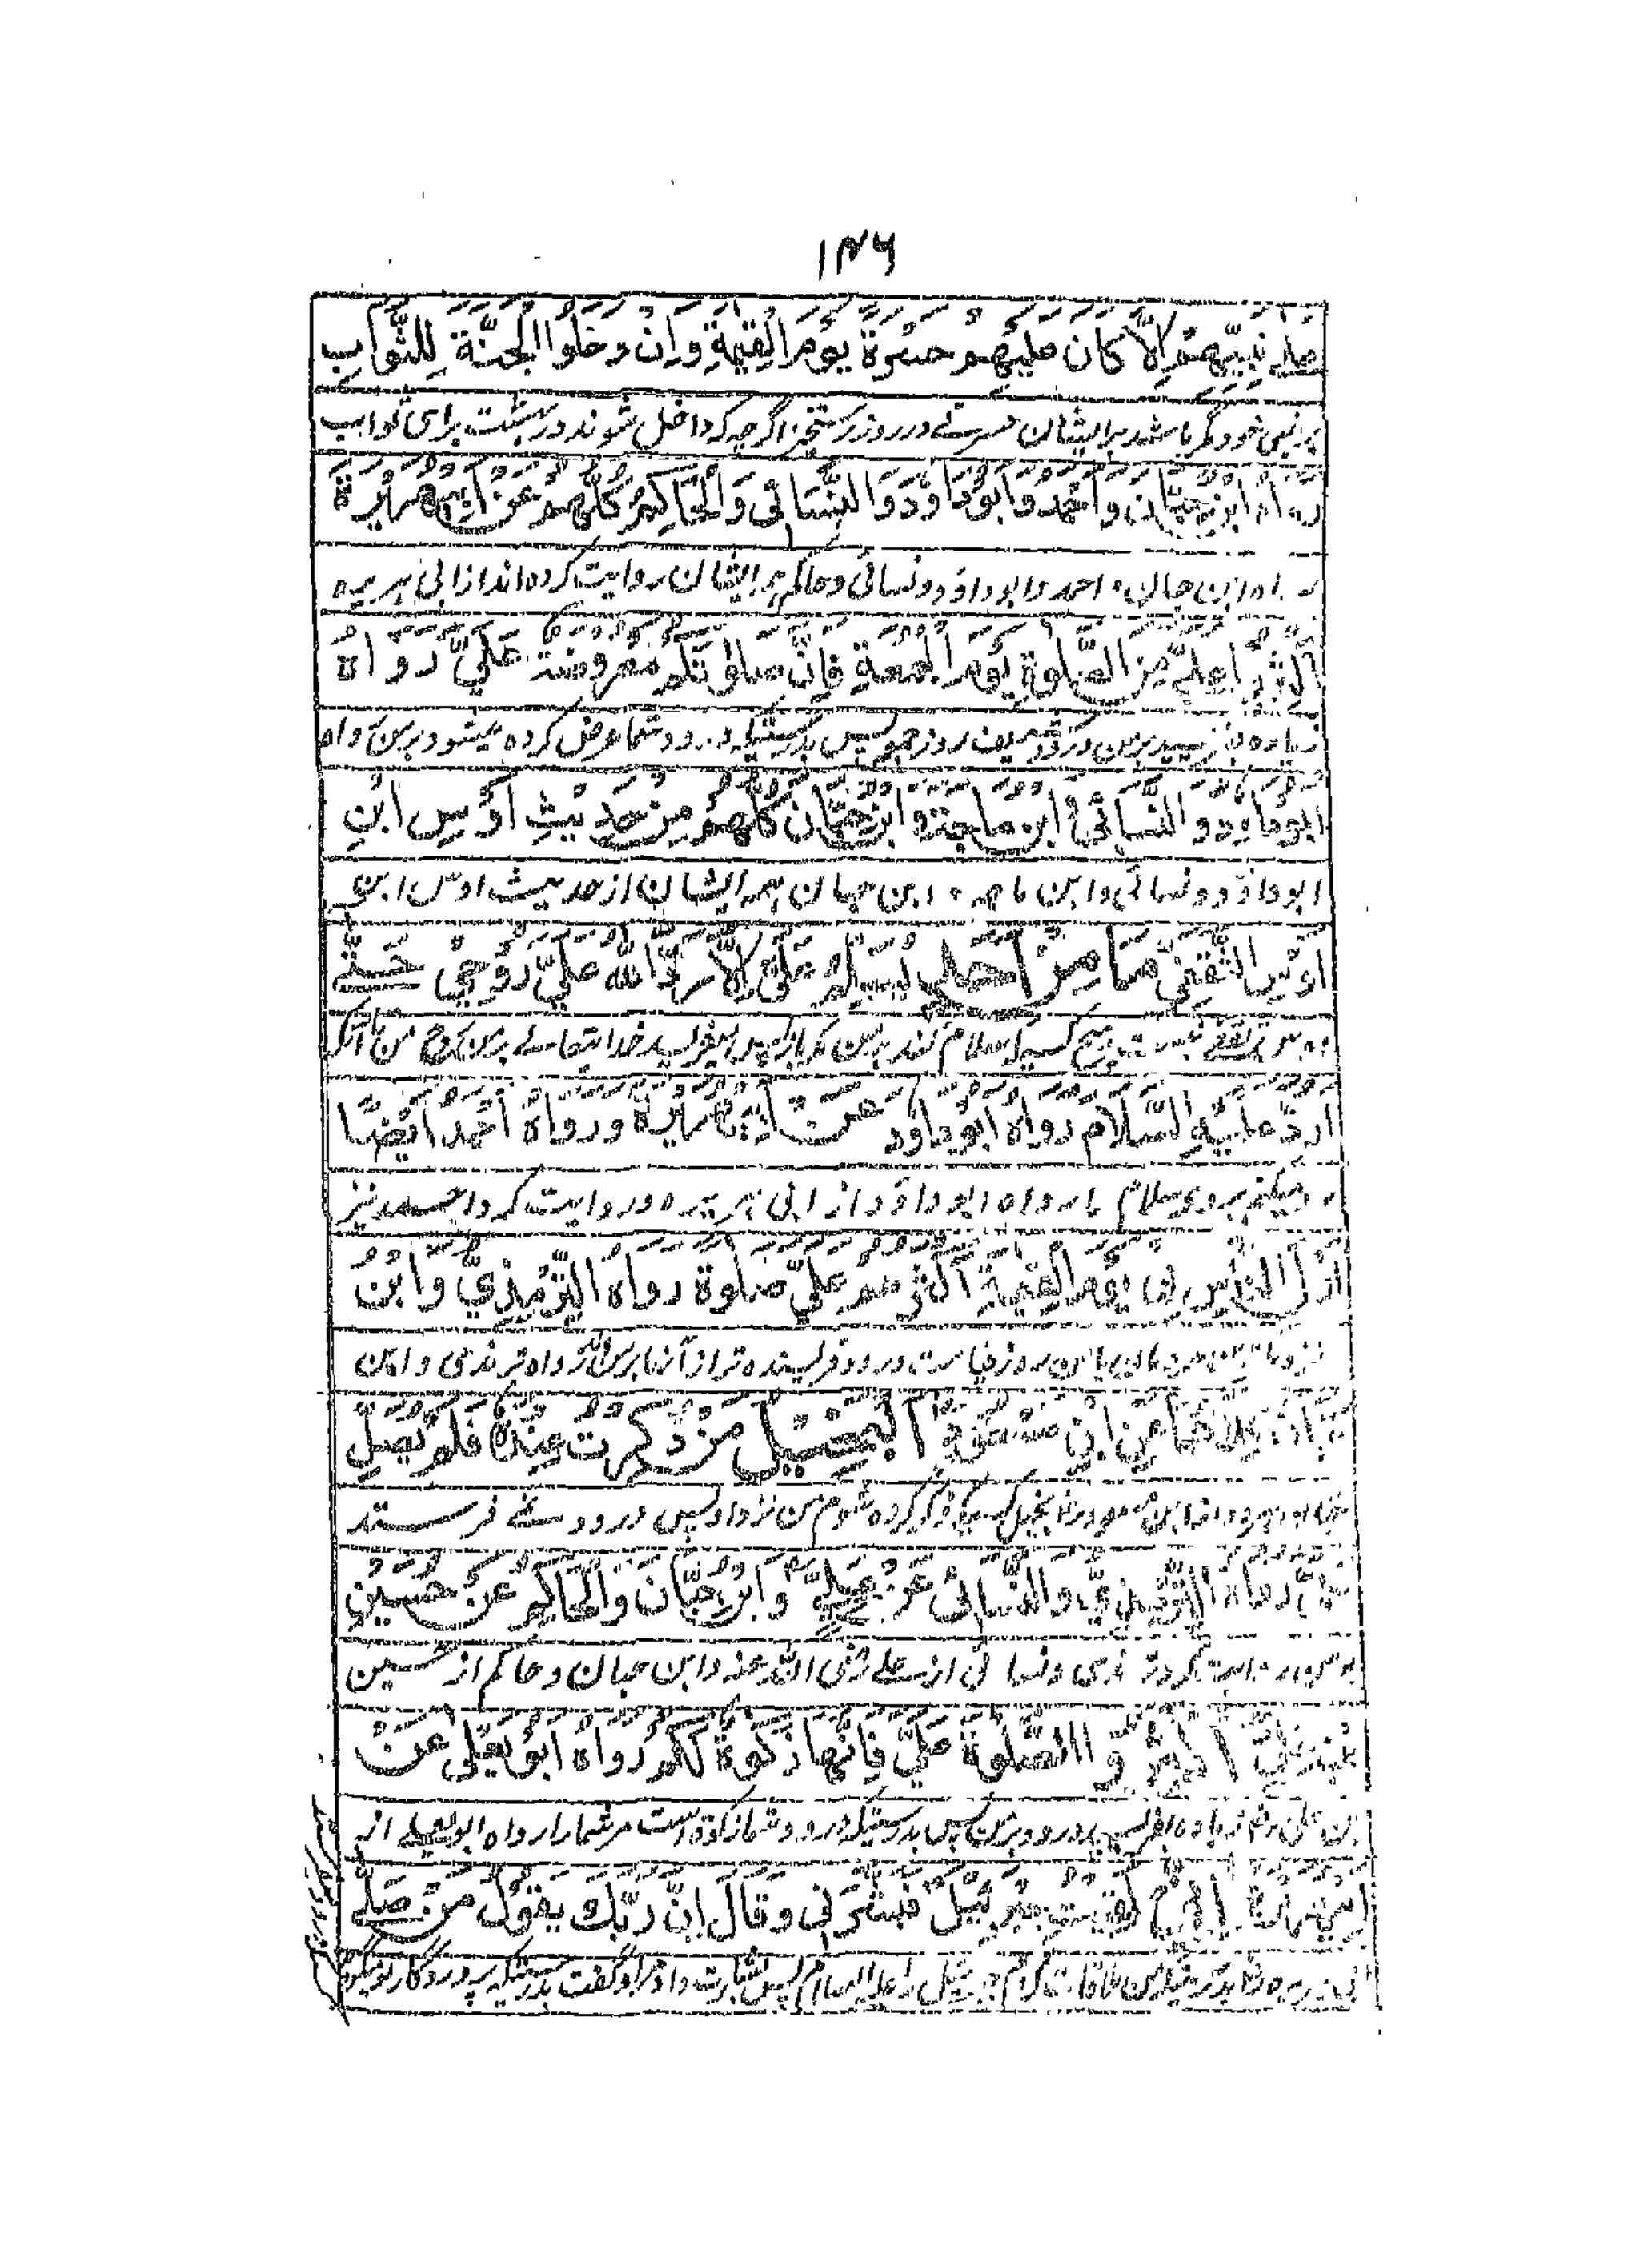 ۱۴۶
علی نَبِیِّهِمْ اِلَّا کَانَ عَلَیْهِمْ حَسْرَةً یَوْمَ الْقِیٰمَةِ وَاِنْ دَخَلُوا الْجَنَّةَ لِلثَّوَابِ
بر نبی خود مگر باشد بر ایشان حسرتے در روز رستخیز اگرچه که داخل شوند در بهشت برای ثواب
رواه ابْنُ حِبَّان وَاَحْمَدُ وَاَبُوْدَاوٗدَ وَالنَّسَائی وَالْحَاکِمُ کُلُّهُمْ عَنْ اَبِیْ هُرَیْرَةَ
رواه ابن حبان و احمد و ابو داؤد و نسائی و حاکم همه ایشان روایت کرده اند از ابی هریره
اَکْثِرُوْا عَلَیَّ مِنَ الصَّلٰوةِ یَوْمَ الْجُمُعَةِ فَاِنَّ صَلٰوتَکُمْ مَعْرُوْضَةٌ عَلَیَّ رَوَاهُ
زیاده بر من درود روز جمعه پس بدرستیکه درود شما عرض کرده میشود بر من رواه
اَبُوْدَاوٗدَ وَالنَّسَائِیُّ ابْنُ مَاجَةَ وابْنُ حِبَّانَ کُلُّهُمْ مِنْ حَدِیْثِ اَوْسِ ابْنِ
ابو داؤد و نسائی و ابن ماجه و ابن حبان همه ایشان از حدیث اوس ابن
اَوْسِ الثَّقَفِیِّ مَا مِنْ اَحَدٍ یُسَلِّمُ عَلَیَّ اِلَّا رَدَّ اللّٰهُ عَلَیَّ رُوْحِیْ حَتّٰی
اوس ثقفی نیست هیچ کسی که سلام کند بر من مگر خدا یتعالے بر من روح من تا آنکه
اَرُدَّ عَلَیْهِ السَّلَامَ رَوَاهُ اَبُوْدَاود عَنْ اَبِیْ هُرَیْرَةَ وَرَوَاهُ اَحْمَدُ اَیْضًا
رد میکنم بر وی سلام را رواه ابو داؤد از ابی هریره و روایت کرد احمد نیز
اَوْلَی النَّاسِ بِیْ یَوْمَ الْقِیٰمَةِ اَکْثَرُهُمْ عَلَیَّ صَلٰوةً رَوَاهُ التِّرْمِذِیُّ وَابْنُ
روز قیامت درود فرستنده تر از آنها بر من رواه ترمذی و ابن
حِبَّانَ کِلَاهُمَا عَنِ ابْنِ مَسْعُوْدٍ اَلْبَخِیْلُ مَنْ ذُکِرْتُ عِنْدَهٗ فَلَمْ یُصَلِّ
ابن مسعود بخیل کسیکه ذکر کرده شوم من نزد او پس درود نے فرستد
عَلَیَّ رَوَاهُ التِّرْمِذِیُّ وَالنَّسَائی عَنْ عَلِیٍّ وَابْنُ حِبَّانَ وَالْحَاکِمُ عَنْ حُسَیْنِ
بر من روایت کرد ترمذی و نسائی از علے رضی اللّٰه عنه و ابن حبان و حاکم از حسین
بْنِ عَلِیٍّ اَکْثِرُوا الصَّلٰوةَ عَلَیَّ فَاِنَّهَا زَکٰوةٌ لَکُمْ رَوَاهُ اَبُوْ یَعْلٰی عَنْ
بن علی درود بر من پس بدرستیکه درود شما زکوة است مر شما را رواه ابو یعلے از
اَبِیْ هُرَیْرَةَ اِنِّیْ لَقِیْتُ جِبْرَئِیْلَ فَبَشَّرَنِیْ وَقَالَ اِنَّ رَبَّکَ یَقُوْلُ مَنْ صَلّٰی
ابی هریره بدرستیکه من ملاقات کردم جبرئیل را علیه السلام پس بشارت داد مرا و گفت بدرستیکه پروردگار تو میگوید